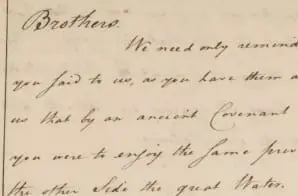 Brothers.
We need only remind
you said to us, as you have them a
us that by an ancient Covenant
you were to enjoy the same priv
the other side the great Water.